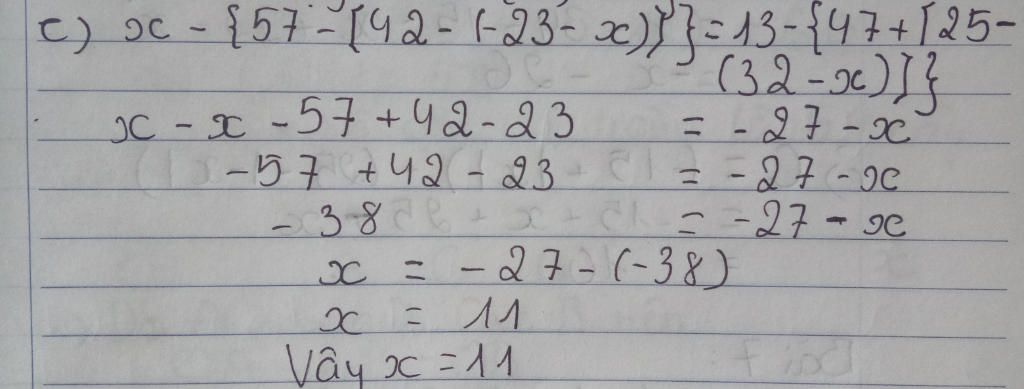 c) x - {57 - [42 - (-23 - x)]} = 13 - {47 + [25 -
(32 - x)]}
x - x - 57 + 42 - 23 = - 27 - x
- 57 + 42 - 23 = - 27 - x
- 38 = - 27 - x
x = - 27 - (-38)
x = 11
Vây x = 11